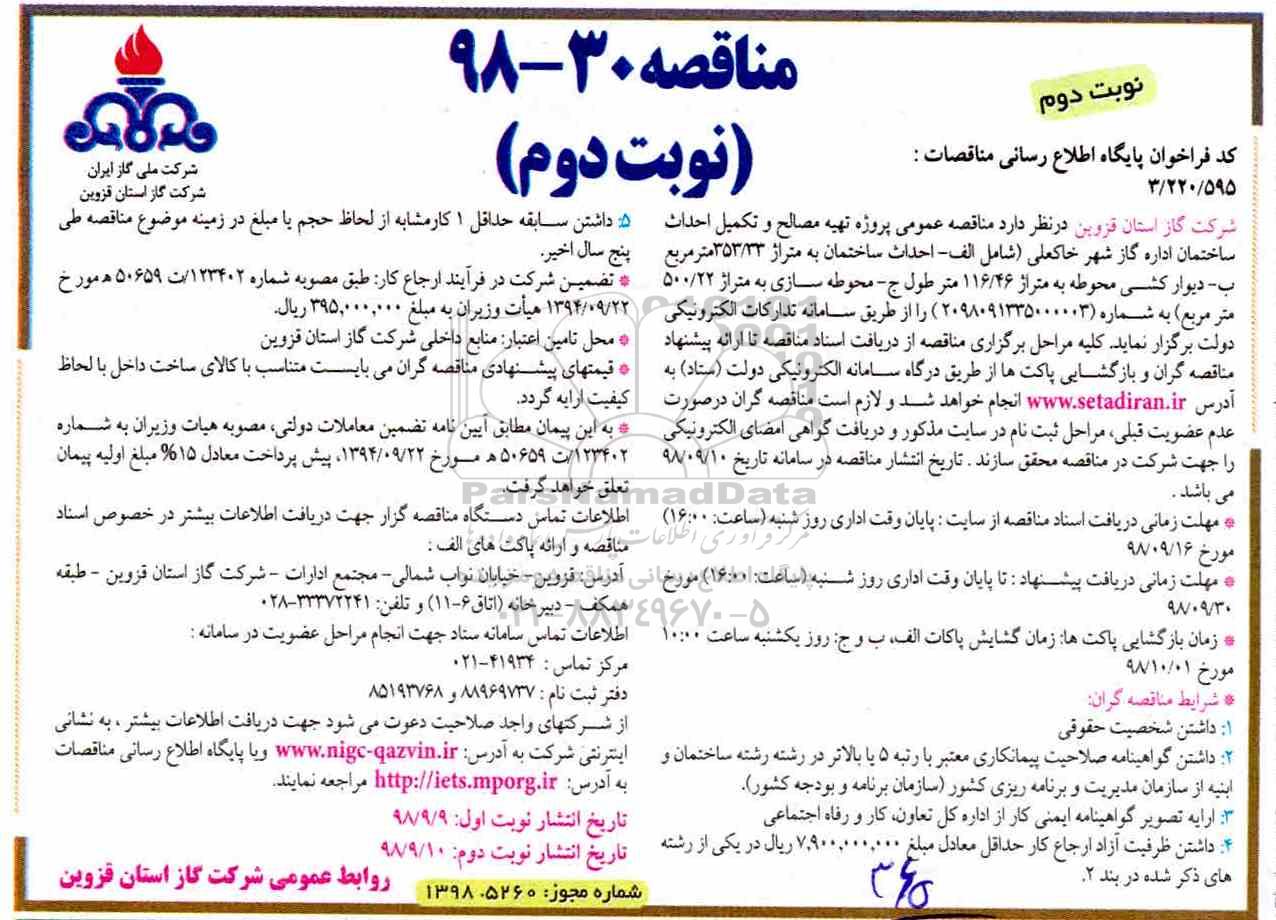 مناقصه ۳۰-۹۸
(نوبت دوم)
نوبت دوم
شرکت ملی گاز ایران
شرکت گاز استان قزوین
کد فراخوان پایگاه اطلاع رسانی مناقصات :
۳/۲۲۰/۵۹۵
شرکت گاز استان قزوین درنظر دارد مناقصه عمومی پروژه تهیه مصالح و تکمیل احداث
ساختمان اداره گاز شهر خاکعلی (شامل الف- احداث ساختمان به متراژ ۳۵۳/۳۳مترمربع
ب- دیوار کشی محوطه به متراژ ۱۱۶/۴۶ متر طول ج- محوطه سازی به متراژ ۵۰۰/۲۲
متر مربع) به شماره (۲۰۹۸۰۹۱۳۳۵۰۰۰۰۰۳) را از طریق سامانه تدارکات الکترونیکی
دولت برگزار نماید. کلیه مراحل برگزاری مناقصه از دریافت اسناد مناقصه تا ارائه پیشنهاد
مناقصه گران و بازگشایی پاکت ها از طریق درگاه سامانه الکترونیکی دولت (ستاد) به
آدرس www.setadiran.ir انجام خواهد شد و لازم است مناقصه گران درصورت
عدم عضویت قبلی، مراحل ثبت نام در سایت مذکور و دریافت گواهی امضای الکترونیکی
را جهت شرکت در مناقصه محقق سازند . تاریخ انتشار مناقصه در سامانه تاریخ ۹۸/۰۹/۱۰
می باشد .
* مهلت زمانی دریافت اسناد مناقصه از سایت : پایان وقت اداری روز شنبه (ساعت: ۱۶:۰۰)
مورخ ۹۸/۰۹/۱۶
* مهلت زمانی دریافت پیشنهاد : تا پایان وقت اداری روز شنبه(ساعت: ۱۶:۰۰) مورخ
۹۸/۰۹/۳۰
* زمان بازگشایی پاکت ها: زمان گشایش پاکات الف، ب و ج: روز یکشنبه ساعت ۱۰:۰۰
مورخ ۹۸/۱۰/۰۱
* شرایط مناقصه گران:
۱: داشتن شخصیت حقوقی
۲: داشتن گواهینامه صلاحیت پیمانکاری معتبر با رتبه ۵ یا بالاتر در رشته رشته ساختمان و
ابنیه از سازمان مدیریت و برنامه ریزی کشور (سازمان برنامه و بودجه کشور).
۳: ارایه تصویر گواهینامه ایمنی کار از اداره کل تعاون، کار و رفاه اجتماعی
۴: داشتن ظرفیت آزاد ارجاع کار حداقل معادل مبلغ ۷,۹۰۰,۰۰۰,۰۰۰ ریال در یکی از رشته
های ذکر شده در بند ۲.
۵: داشتن سابقه حداقل ۱ کارمشابه از لحاظ حجم یا مبلغ در زمینه موضوع مناقصه طی
پنج سال اخیر.
* تضمین شرکت در فرآیند ارجاع کار: طبق مصوبه شماره ۱۲۳۴۰۲/ت ۵۰۶۵۹ ه مور خ
۱۳۹۴/۰۹/۲۲ هیأت وزیران به مبلغ ۳۹۵,۰۰۰,۰۰۰ ریال.
* محل تامین اعتبار: منابع داخلی شرکت گاز استان قزوین
* قیمتهای پیشنهادی مناقصه گران می بایست متناسب با کالای ساخت داخل با لحاظ
کیفیت ارایه گردد.
* به این پیمان مطابق آیین نامه تضمین معاملات دولتی، مصوبه هیات وزیران به شماره
۱۲۳۴۰۲/ت ۵۰۶۵۹ ه مورخ ۱۳۹۴/۰۹/۲۲، پیش پرداخت معادل ۱۵% مبلغ اولیه پیمان
تعلق خواهد گرفت.
اطلاعات تماس دستگاه مناقصه گزار جهت دریافت اطلاعات بیشتر در خصوص اسناد
مناقصه و ارائه پاکت های الف :
آدرس: قزوین- خیابان نواب شمالی- مجتمع ادارات - شرکت گاز استان قزوین - طبقه
همکف - دبیرخانه (اتاق۶-۱۱) و تلفن: ۳۳۳۷۲۲۴۱-۰۲۸
اطلاعات تماس سامانه ستاد جهت انجام مراحل عضویت در سامانه :
مرکز تماس : ۴۱۹۳۴-۰۲۱
دفتر ثبت نام : ۸۸۹۶۹۷۳۷ و ۸۵۱۹۳۷۶۸
از شرکتهای واجد صلاحیت دعوت می شود جهت دریافت اطلاعات بیشتر ، به نشانی
اینترنتی شرکت به آدرس: www.nigc-qazvin.ir ویا پایگاه اطلاع رسانی مناقصات
به آدرس: http://iets.mporg.ir مراجعه نمایند.
تاریخ انتشار نوبت اول: ۹۸/۹/۹
تاریخ انتشار نوبت دوم: ۹۸/۹/۱۰
شماره مجوز: ۱۳۹۸.۵۲۶۰
روابط عمومی شرکت گاز استان قزوین
ParsNamadData
۰۲۱-۸۸۳۴۹۶۷۰-۵